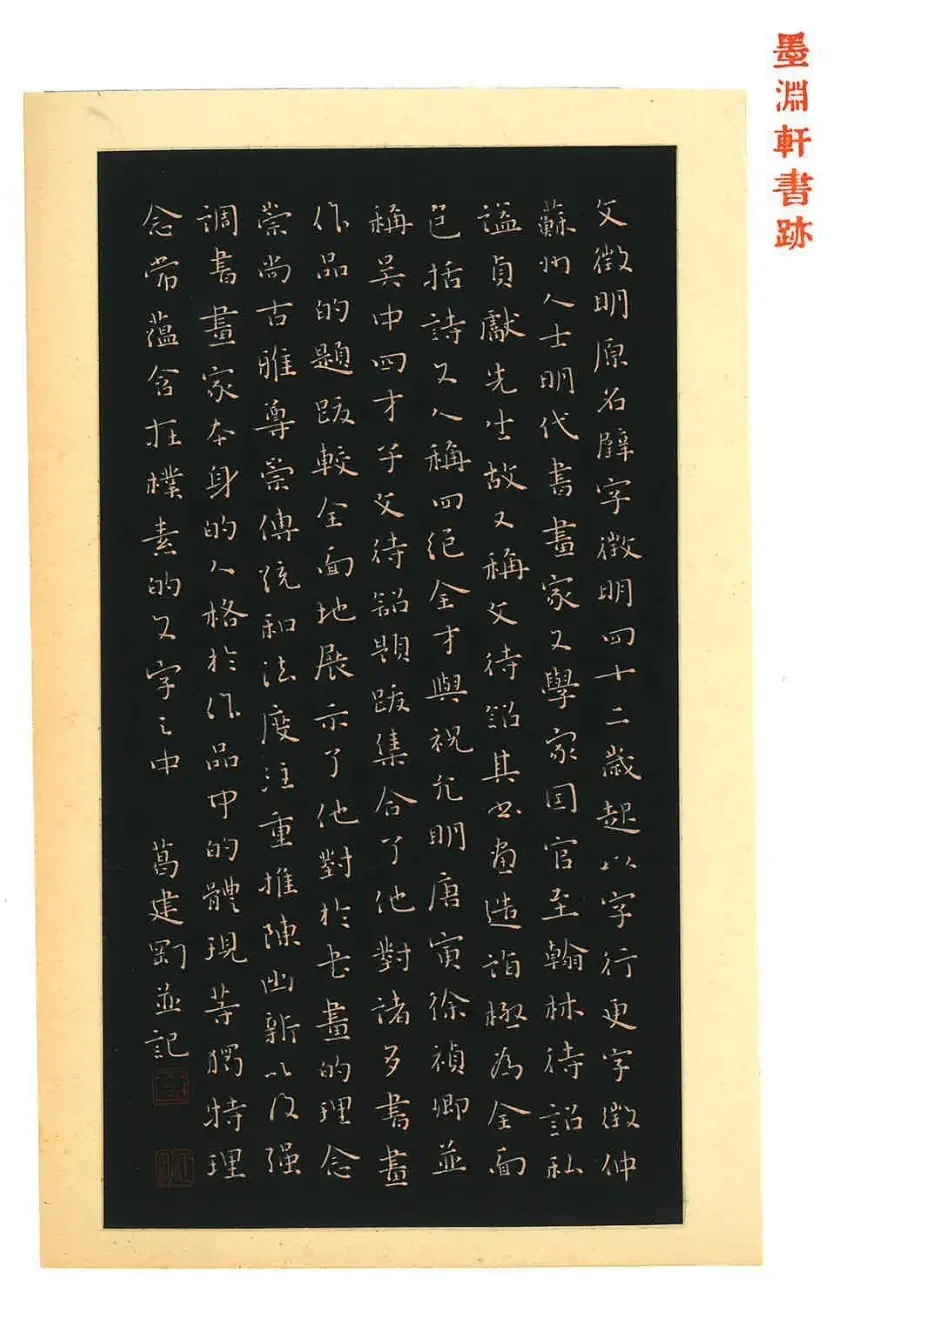 墨淵軒書跡
文徵明原名壁字徵明四十二歲起以字行更字徵仲
蘇州人士明代書畫家文學家因官至翰林待詔私
謚貞獻先生故又稱文待詔其書畫造詣極为全面
包括詩文人稱四絕全才與祝允明唐寅徐禎卿並
稱吴中四才子文待詔題跋集合了他對諸多書畫
作品的題跋較全面地展示了他對於书畫的理念
崇尚古雅尊崇傳統和法度注重推陳出新以及强
調書畫家本身的人格於作品中的體現等獨特理
念常蕴含在樸素的文字之中 葛建剛並記